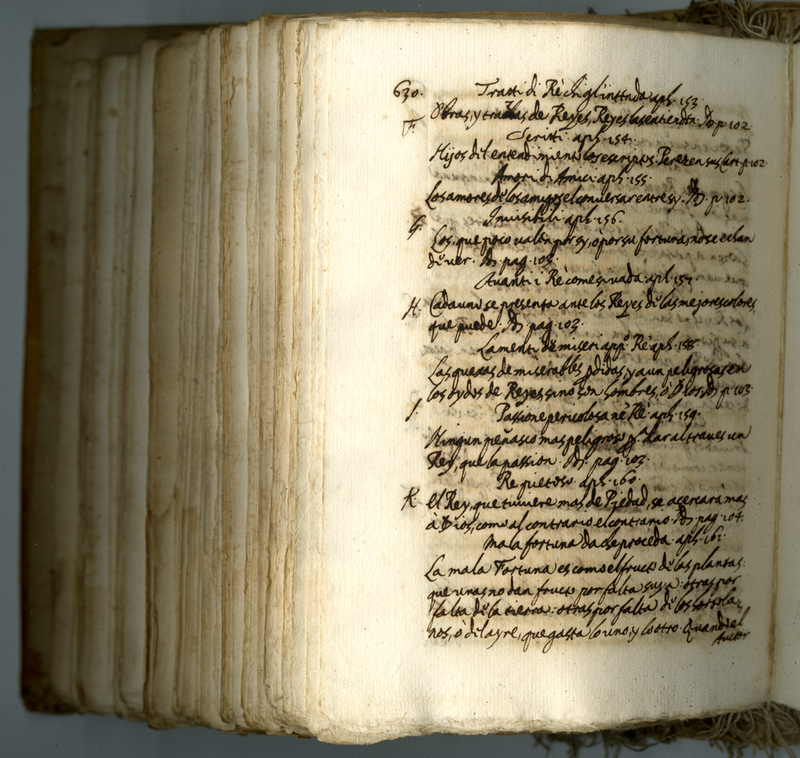 630. Tratti di Rè chi gl'intenda aph. 153.
F. Obras, y trazas de Reyes, Reyes las entiendan. p. 102
Scritti. aph. 154.
Hijos del entendimiento los escriptos. Perez en sus Cart. p. 102
Amori di Amici. aph. 155.
Los amores de los amigos el conversar entre sy. p. 102.
G. Invisibili. aph. 156.
Los, que poco valen por sy, ò por su fortuna, no se echan
de ver. pag. 103.
Avanti i Rè come si vada. aph. 157.
H. Cada uno se presenta ante los Reyes de las mejores colores,
que puede. pag. 103.
Lamenti de miseri app.o Rè. aph. 158.
Las quexas de miserables perdidas, y aun peligrosas en
los oydos de Reyes, si no son hombres, ò Dios. p. 103
I. Passione pericolosa ne Rè. aph. 159.
Ningun peñasco mas peligroso para dar al traves un
Rey, que la passion. pag. 103.
Re pietoso. aph. 160.
K. El Rey, que tuviere mas de Piedad, se acercarà mas
à Dios, como al contrario el contrario. pag. 104.
Mala fortuna da che proceda. aph. 161.
La mala Fortuna es como el fructo de las plantas:
que unas no dan fructo por falta suya: otras por
falta de la tierra: otras por falta de los hortola,
nos, ò del ayre, que gasta lo uno, y lo otro. Quando el
Autor